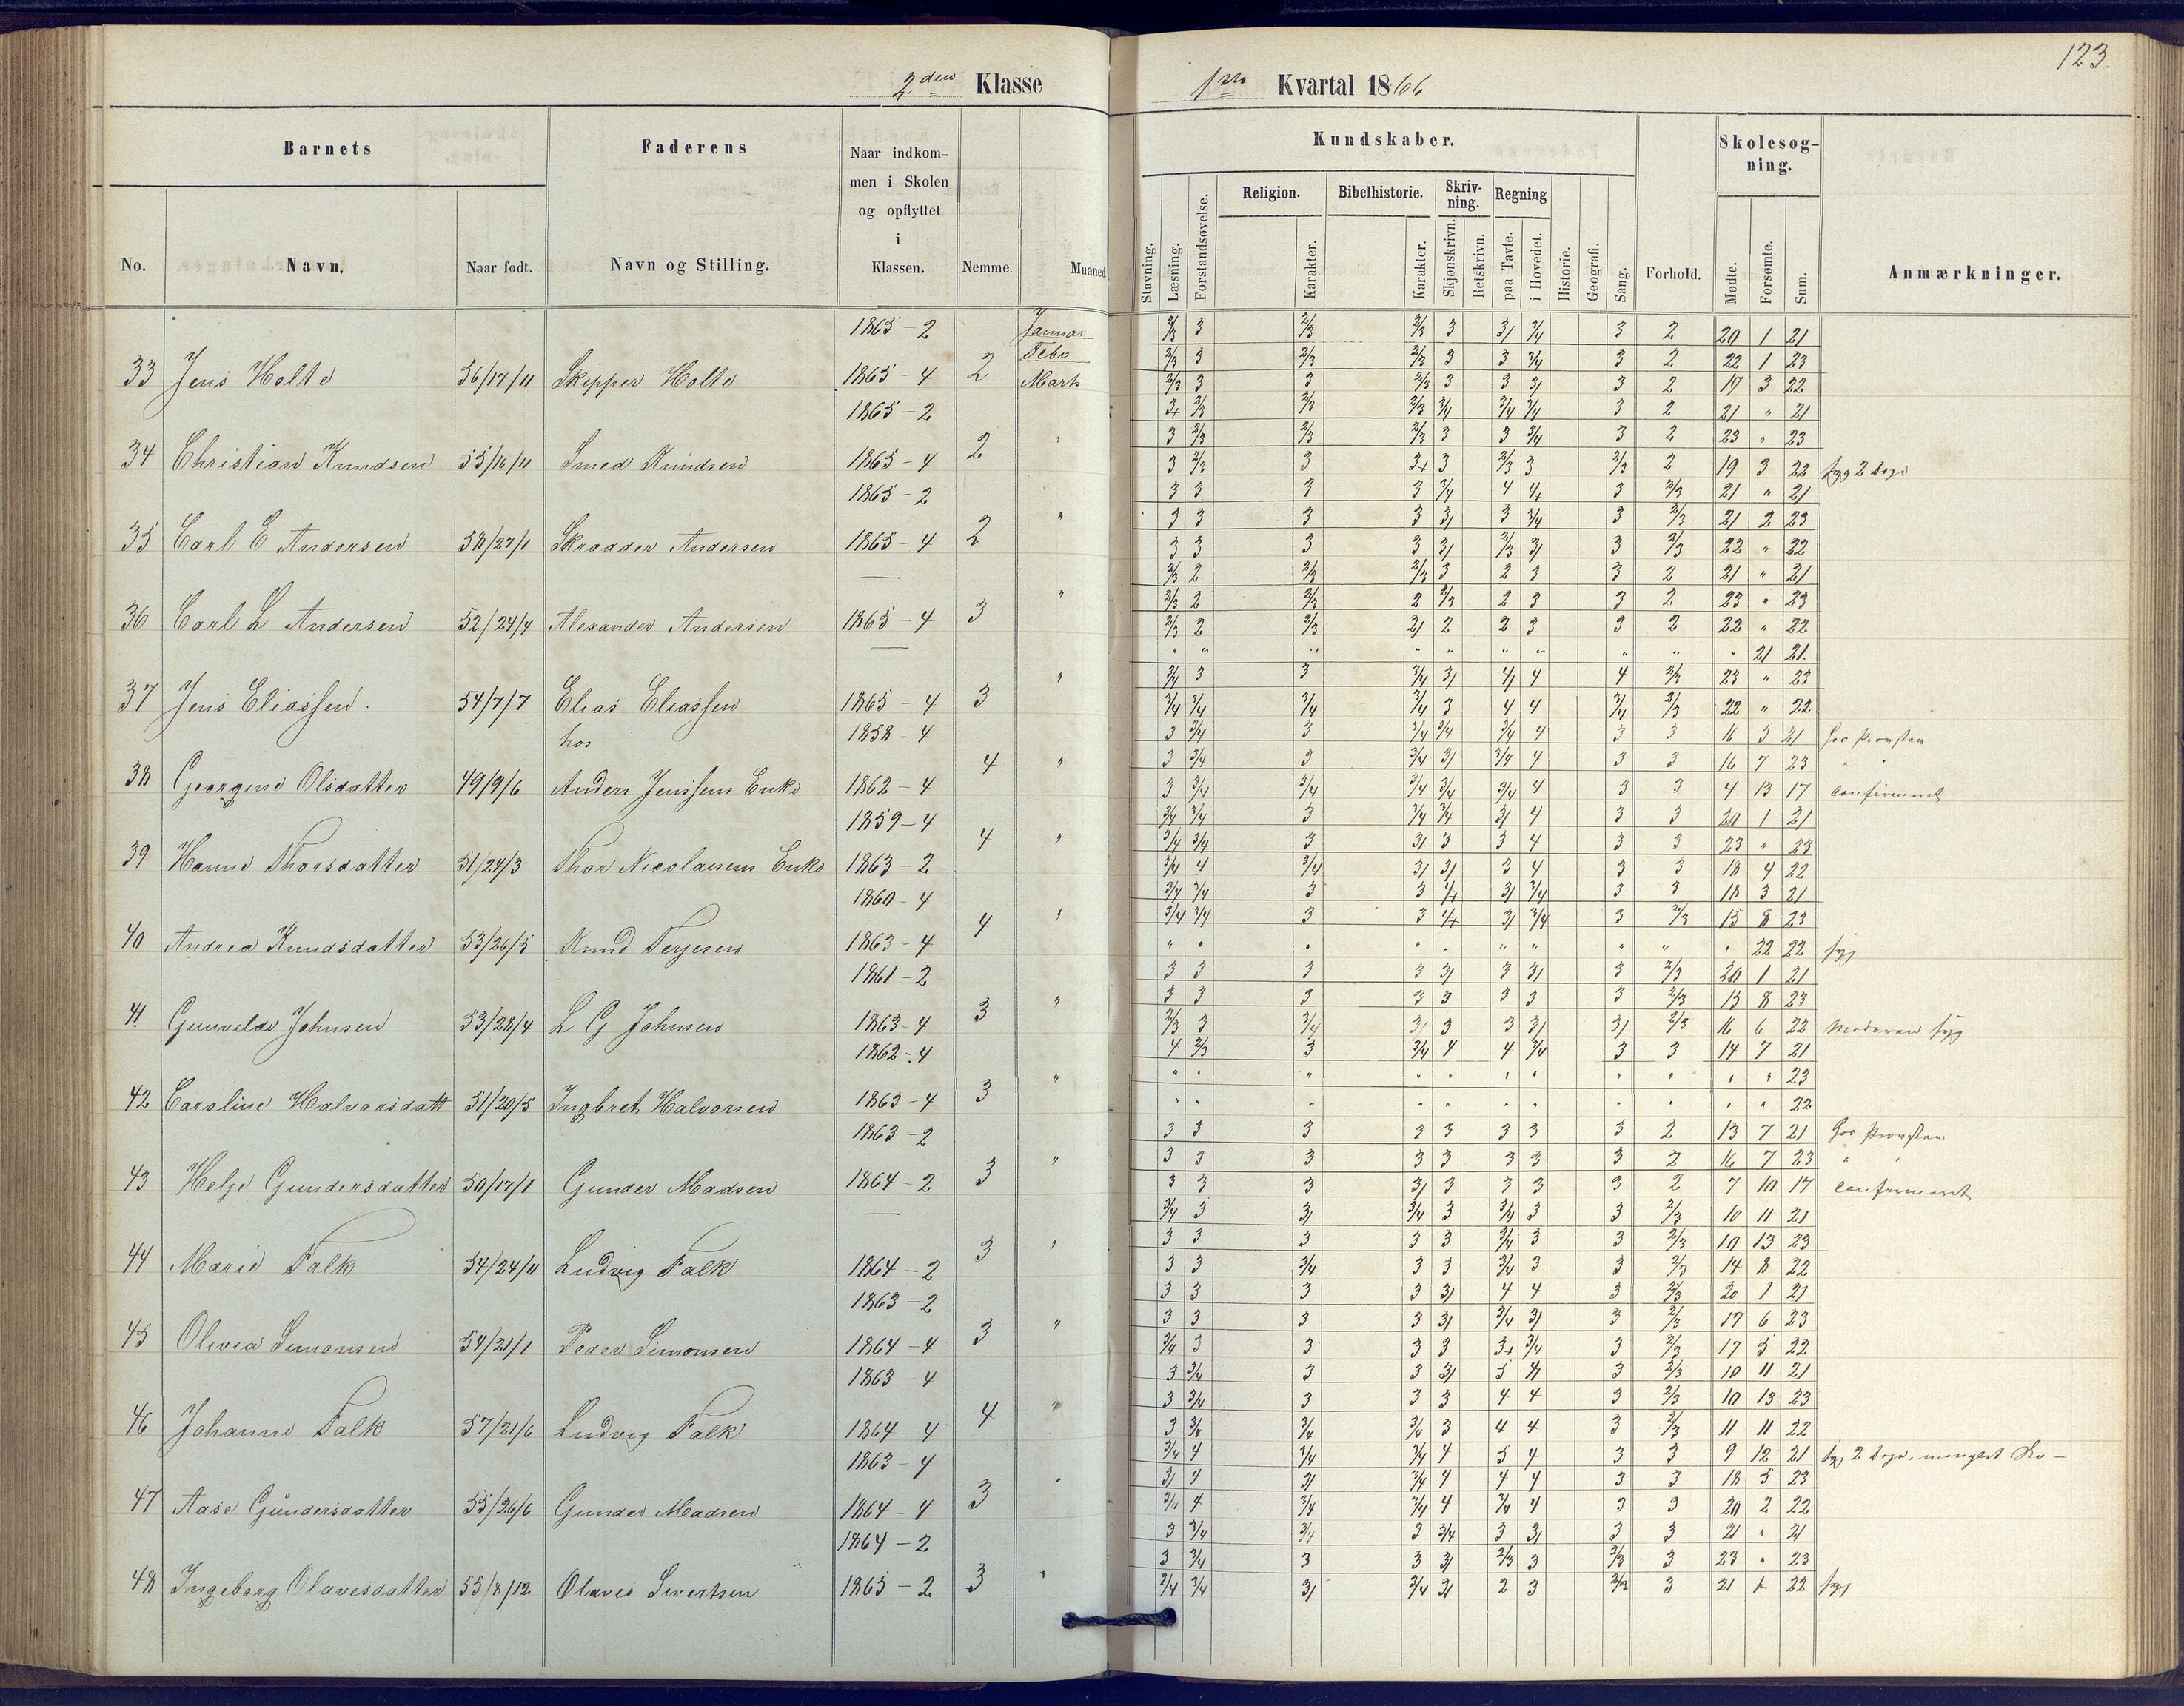 123.
2den Klasse
1ste Kvartal 1866
Barnets
Faderens
Naar indkom-
men i Skolen
og opflyttet
i
Klassen.
No.
Navn.
Naar født.
Navn og Stilling.
Nemme
Maaned
Kundskaber.
Skolesøg-
ning.
Religion.
Bibelhistorie.
Skriv-
ning.
Regning
Stavning.
Læsning.
Forstandsøvelse.
Karakter.
Karakter.
Skjønskrivn.
Retskrivn.
paa Tavle.
i Hovedet.
Historie.
Geografi.
Sang.
Forhold.
Mødte.
Forsømte.
Sum.
Anmærkninger.
1865 - 2 Januar 2/3 3 2/3 2/3 3 3/ 3/4 3 2 20 1 21
Febr 2/3 3 2/3 2/3 3 3 3/4 3 2 22 1 23
33 Jens Holte 56/17/11 Skipper Holte 1865 - 4 2 Marts 2/3 3 3 2/3 3 3 3/ 3 2 19 3 22
1865 - 2 3+ 2/3 2/3 2/3 3/4 3/4 3/4 3 2 21 " 21
3 2/3 2/3 2/3 3 3 3/4 3 2 23 " 23
34 Christian Knudsen 55/16/11 Smed Knudsen 1865 - 4 2 " 3 2/3 3 3+ 3 2/3 3 2/3 2 19 3 22 syg 2 Dage
1865 - 2 3 3 3 3 3/4 4 4+ 3 2/3 21 " 21
3 3 3 3 3/ 3 3/4 3 2/3 21 2 23
35 Carl E Andersen 58/27/1 Skrædder Andersen 1865 - 4 2 " 3 3 3 3 3/ 2/3 3/ 3 2/3 22 " 22
2/3 2 2/3 2/3 3 2 3 3 2 21 " 21
2/3 2 2/3 2 2/3 2 3 3 2 23 " 23
36 Carl L Andersen 52/24/4 Alexander Andersen 1865 - 4 3 " 2/3 2 2/3 2/ 2 2 3 3 2 22 " 22
" " " " " " " " " " 21 21.
3/4 3 3 3/4 3/ 4/ 4 4 2/3 23 " 23
37 Jens Eliassen. 54/7/7 Elias Eliassen 1865 - 4 3 " 3/4 3/4 3/4 3/4 3 4 4 3/4 2/3 22 " 22
hos 1858 - 4 3 3/4 3 3/4 3/4 3/4 4 3 3 16 5 21 hos Provsten
3 3/4 3 3/4 3/ 3/4 4 3 3 16 7 23 " "
38 Georgine Olsdatter 49/9/6 Anders Jenssens Enke 1862 - 4 4 " 3 3/4 3/4 3/4 3/4 3/4 4 3 3 4 13 17 confirmeret
1859 - 4 3/4 3/4 3 3/4 3/4 3/ 4 3 3 20 1 21
3/4 3/4 3 3/ 3 3 4 3 3 23 " 23
39 Hanne Thorsdatter 51/24/3 Thor Nicolaisens Enke 1863 - 2 4 " 3/4 4 3/4 3/ 3/ 3 4 3 3 18 4 22
1860 - 4 3/4 3/4 3 3 4+ 3/ 3/4 3 3 18 3 21
3/4 3/4 3 3 4+ 3/ 3/4 3 2/3 15 8 23
40 Andrea Knudsdatter 53/26/5 Knud Terjesen 1863 - 4 4 " " " " " " " " " " " 22 22 syg
1861 - 2 3 3 3 3 3/ 3 3/ 3 2/3 20 1 21
3 3 3 3 3 3 3 3 2/3 15 8 23
41 Gunvilde Johnsen 53/28/4 L G Johnsen 1863 - 4 3 " 2/3 3 3/4 3/ 3 3 3/ 3/ 2/3 16 6 22 Moderen syg
1862 - 4 4 2/3 3 3/4 4 4 3/4 3 3 14 7 21
" " " " " " " " " " " 23
42 Caroline Halvorsdatt 51/20/5 Ingbret Halvorsen 1863 - 4 3 " " " " " " " " " " " " 22
1863 - 2 3 3 3 3 3 3 3 3 2 13 7 21 hos Provsten
3 3 3 3 3 3 3 3 2 16 7 23 " "
43 Helje Gundersdatter 50/17/1 Gunder Madsen 1864 - 2 3 " 3 3 3 3/ 3 3 3 3 2 7 10 17 confirmeret
3/4 3 3/ 3/4 3 3/4 3 3 2/3 10 11 21
3 3 3 3 3 3/4 3 3 2/3 10 13 23
44 Marie Falk 54/24/11 Ludvig Falk 1864 - 2 3 " 3 3 3/4 3 3 3/4 3 3 2/3 14 8 22
1863 - 2 3 3 3 3 3/ 4 4 3 2/3 20 1 21
3 3 3 3 3/ 3/4 3/ 3 2/3 17 6 23
45 Olivia Simonsen 54/21/1 Peder Simonsen 1864 - 4 3 " 3/4 3 3 3 3 3+ 3/4 3 2/3 17 5 22
1863 - 4 3 3/4 3 3 3/ 5 4 3 2/3 10 11 21
3 3/4 3 3 3 4 4 3 2/3 10 13 23
46 Johanne Falk 57/21/6 Ludvig Falk 1864 - 4 4 " 3 3/4 3/4 3/4 3 4 4 3 2/3 11 11 22
1863 - 4 3/4 4 3/4 3/4 4 5 4 3 3 9 12 21 syg 2 Dage, manglet Sko -
3/ 4 3/ 3/4 4 4 4 3 3 18 5 23
47 Aase Gundersdatter 55/26/6 Gunder Madsen 1864 - 4 3 " 3/4 4 3/4 3/4 4 3/4 4 3 3 20 2 22
1864 - 2 3 3/4 3/4 3 3/4 3 3/ 3 3 21 " 21
3 3/4 3 3 3/ 2/3 3 2/3 3 23 " 23
48 Ingeborg Olavesdatter 55/8/12 Olaves Sivertsen 1865 - 2 3 " 3/4 3/4 3/ 3/4 3/ 2 3 2/3 3 21 1 22 syg